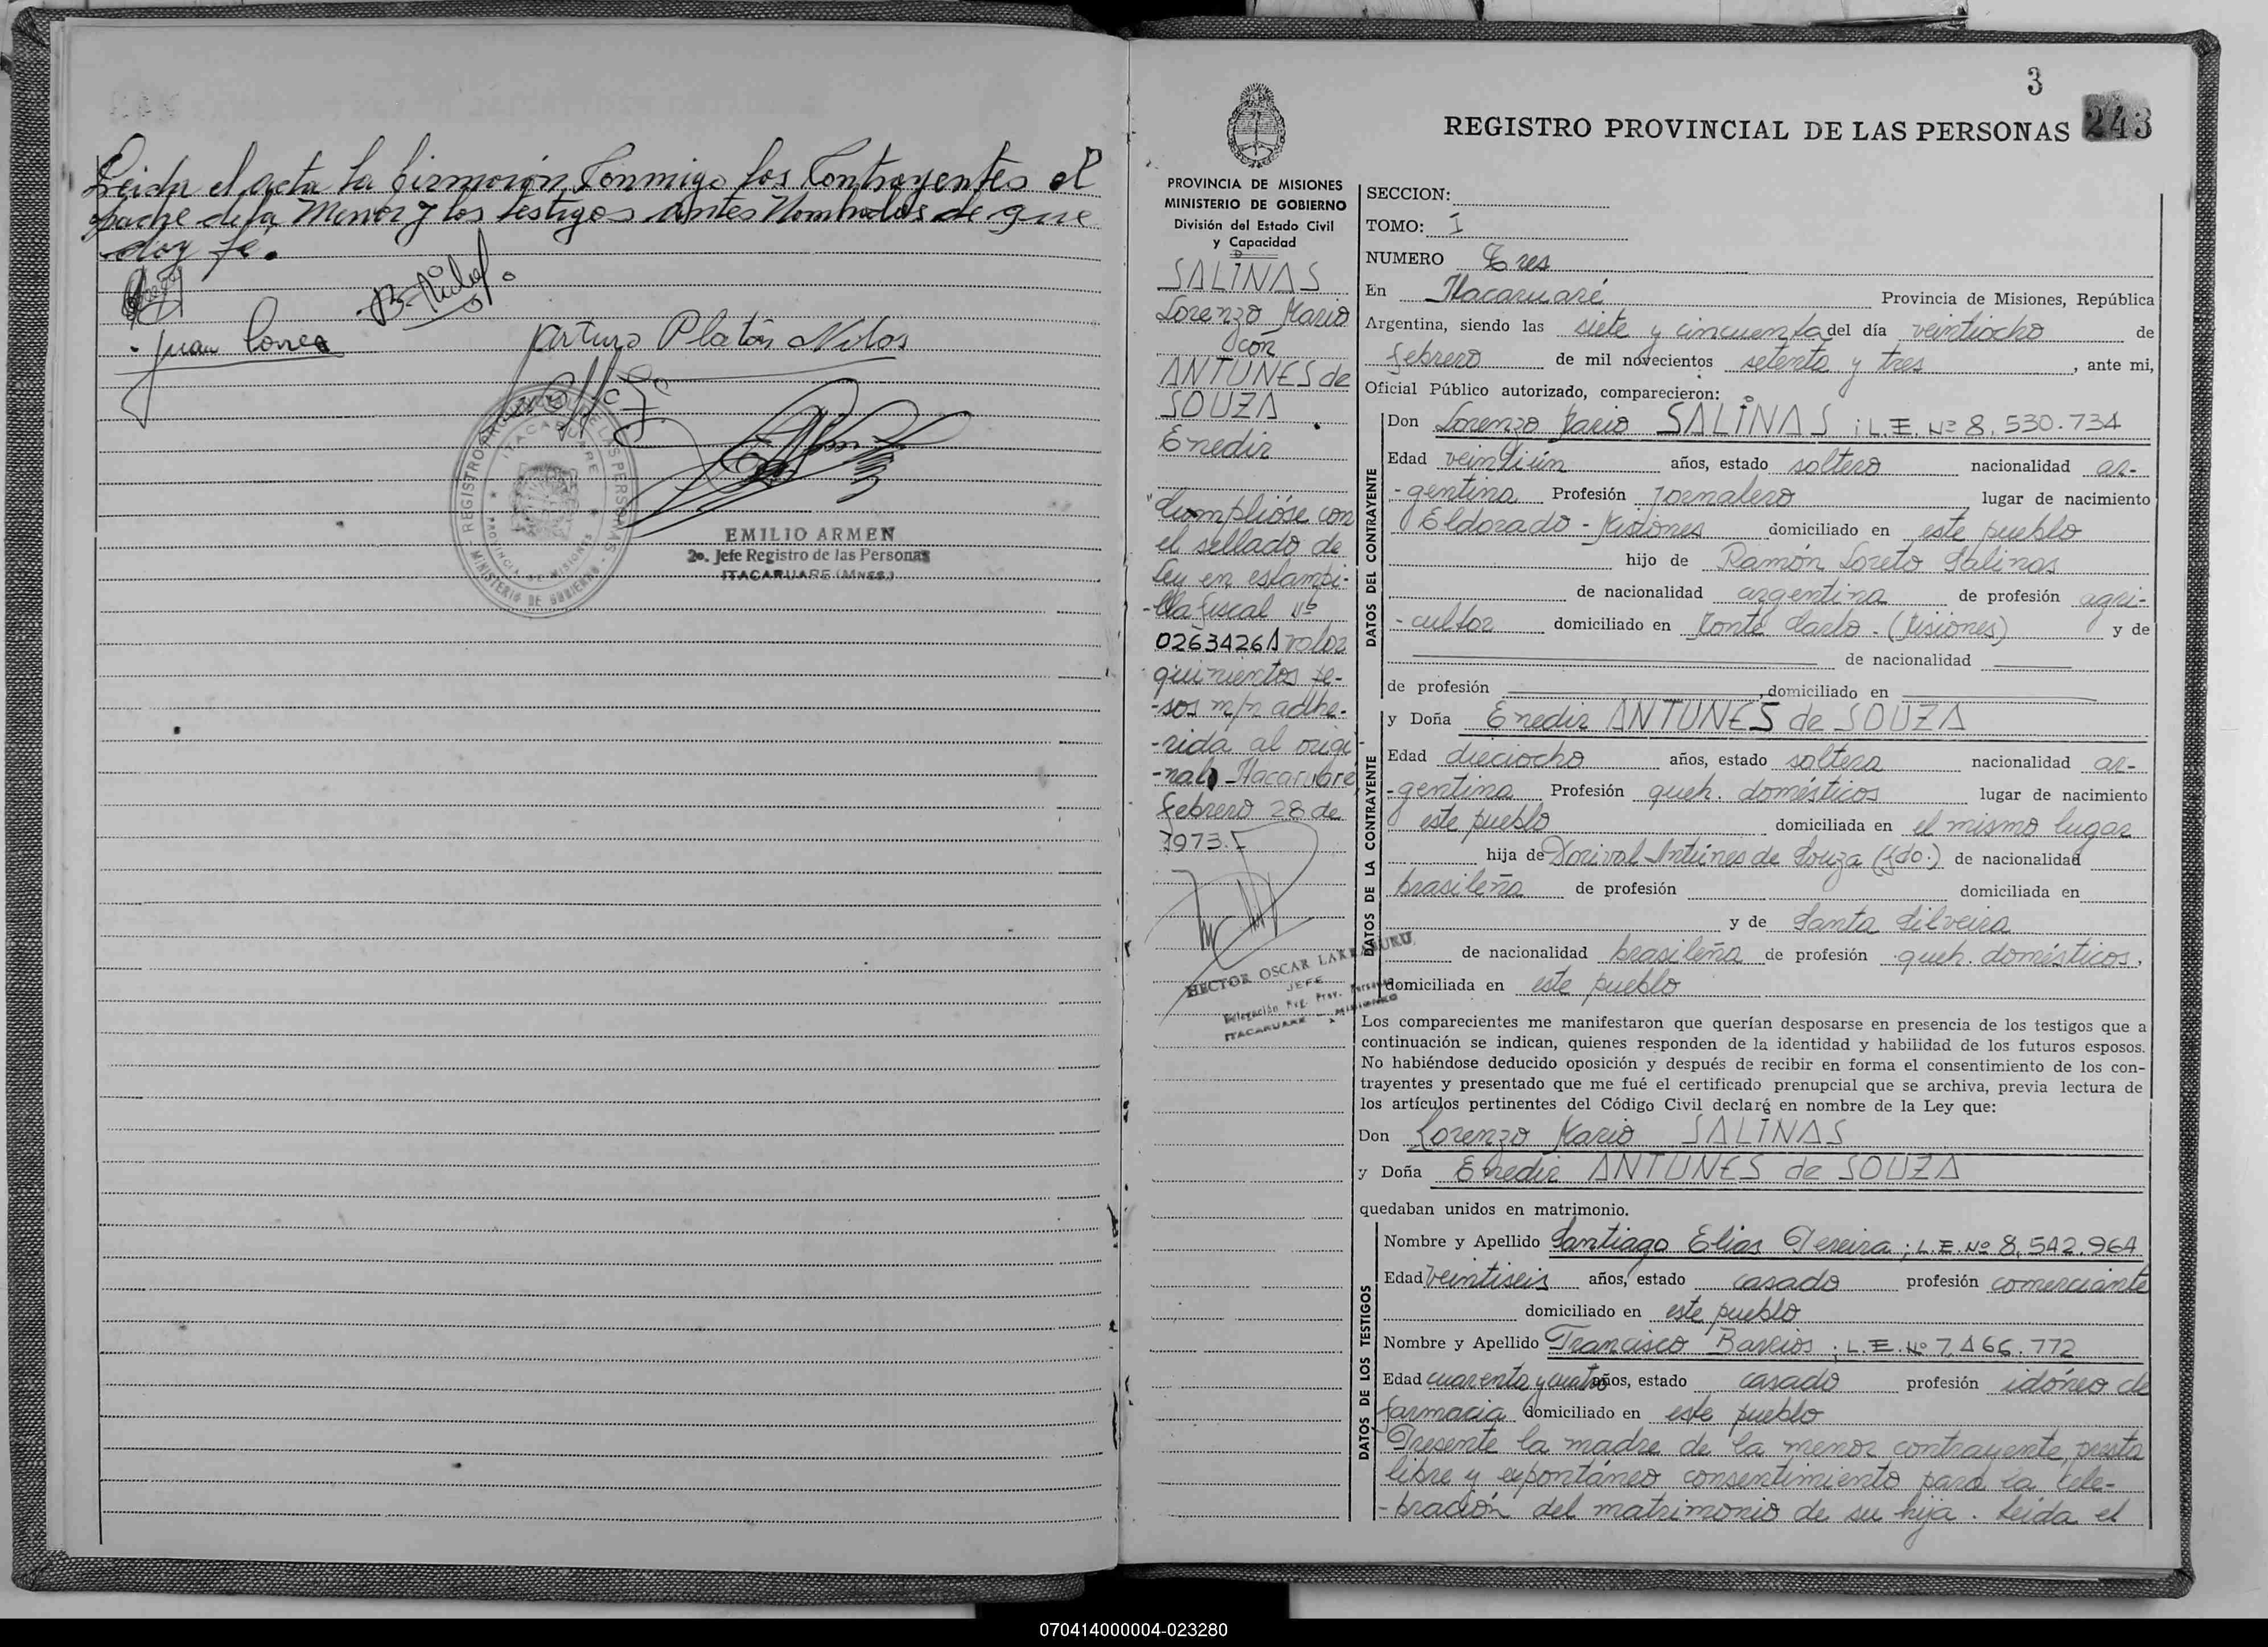 Leida el acta la firmaron Conmigo los Contrayentes el
padre de la Menor y los testigos antes Nombrados de que
doy fe.
Juan Correa
Arturo Platón
REGISTRO PROVINCIAL DE LAS PERSONAS
ITACARUARE
PROVINCIA DE MISIONES
MINISTERIO DE GOBIERNO
EMILIO ARMEN
2o. Jefe Registro de las Personas
ITACARUARE (MNES.)
3
REGISTRO PROVINCIAL DE LAS PERSONAS 243
PROVINCIA DE MISIONES
MINISTERIO DE GOBIERNO
División del Estado Civil
y Capacidad
SALINAS
Lorenzo Mario
con
ANTUNES de
SOUZA
Enedir
"Cumplióse con
el sellado de
ley en estampi-
-lla fiscal Nº
0263426A valor
quinientos pe-
-sos m/n adhe-
-rida al origi-
-nal) Itacaruaré,
febrero 28 de
1973.-
HECTOR OSCAR LARRABURU
JEFE
Delegación Reg. Prov. Personas
ITACARUARE - MISIONES
SECCION:
TOMO: I
NUMERO Tres
En Itacaruaré Provincia de Misiones, República
Argentina, siendo las siete y cincuenta del día veintiocho de
febrero de mil novecientos setenta y tres, ante mi,
Oficial Público autorizado, comparecieron:
DATOS DEL CONTRAYENTE
Don Lorenzo Mario SALINAS ; L.E. Nº 8.530.734
Edad veintiún años, estado soltero nacionalidad ar-
-gentina Profesión jornalero lugar de nacimiento
Eldorado - Misiones domiciliado en este pueblo
hijo de Ramón Loreto Salinas
de nacionalidad argentina de profesión agri-
-cultor domiciliado en Monte Carlo - (Misiones) y de
de nacionalidad
de profesión , domiciliado en
DATOS DE LA CONTRAYENTE
y Doña Enedir ANTUNES de SOUZA
Edad dieciocho años, estado soltera nacionalidad ar-
-gentina Profesión queh. domésticos lugar de nacimiento
este pueblo domiciliada en el mismo lugar
hija de Dorival Antúnes de Souza (fdo.) de nacionalidad
brasileña de profesión domiciliada en
y de Santa Silveira
de nacionalidad brasileña de profesión queh. domésticos,
domiciliada en este pueblo
Los comparecientes me manifestaron que querían desposarse en presencia de los testigos que a
continuación se indican, quienes responden de la identidad y habilidad de los futuros esposos.
No habiéndose deducido oposición y después de recibir en forma el consentimiento de los con-
trayentes y presentado que me fué el certificado prenupcial que se archiva, previa lectura de
los artículos pertinentes del Código Civil declaré en nombre de la Ley que:
Don Lorenzo Mario SALINAS
y Doña Enedir ANTUNES de SOUZA
quedaban unidos en matrimonio.
DATOS DE LOS TESTIGOS
Nombre y Apellido Santiago Elias Pereira ; L.E. Nº 8.542.964
Edad veintiseis años, estado casado profesión comerciante
domiciliado en este pueblo
Nombre y Apellido Francisco Barrios ; L.E. Nº 7.466.772
Edad cuarenta y cuatro años, estado casado profesión idóneo de
farmacia domiciliado en este pueblo
Presente la madre de la menor contrayente, presta
libre y expontáneo consentimiento para la cele-
-bración del matrimonio de su hija. Leida el
070414000004-023280